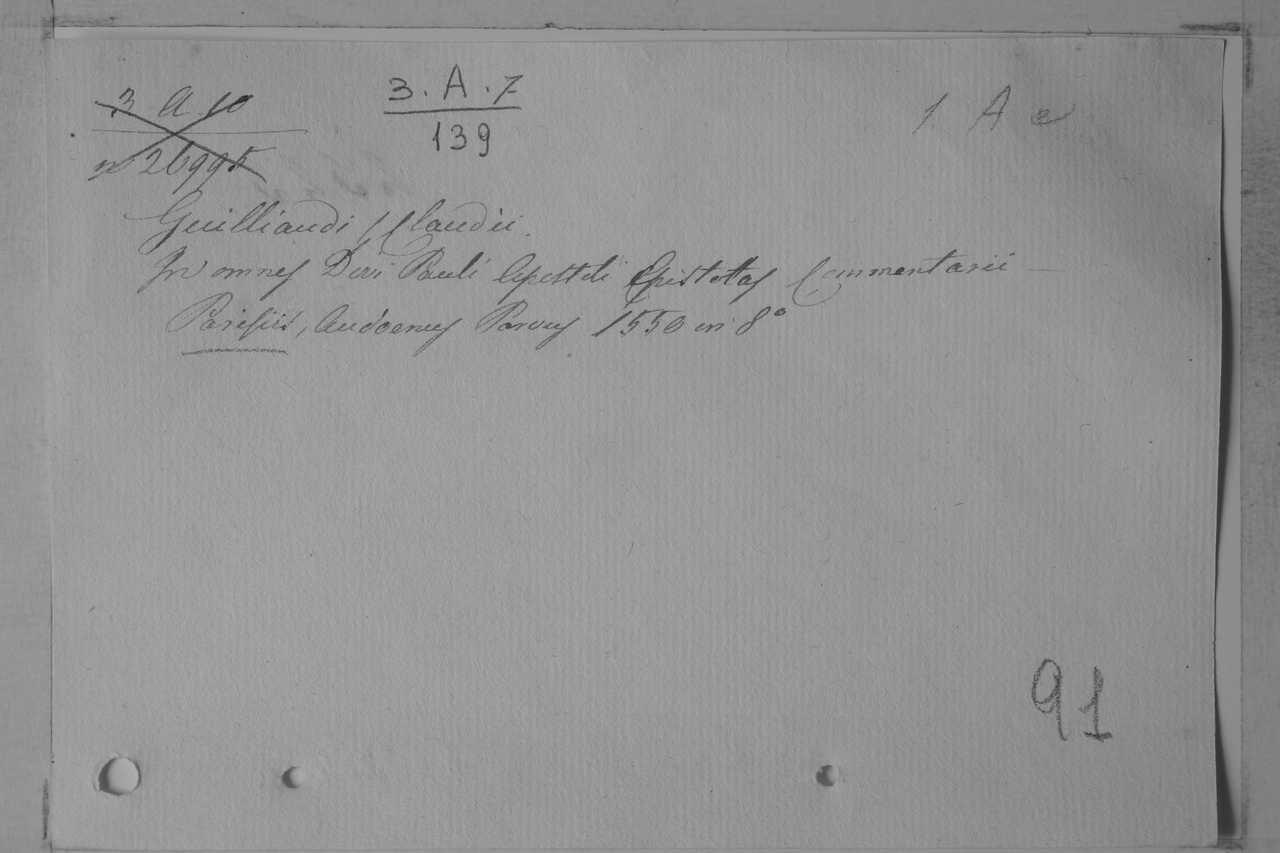 3 A 10
3.A.7
1 A e
139
nº 26995
Guilliaudi, Claudii.
In omnes Divi Pauli Apostoli Epistolas Commentarii
Parisiis, Audoenus Parvus 1550 in 8º
91